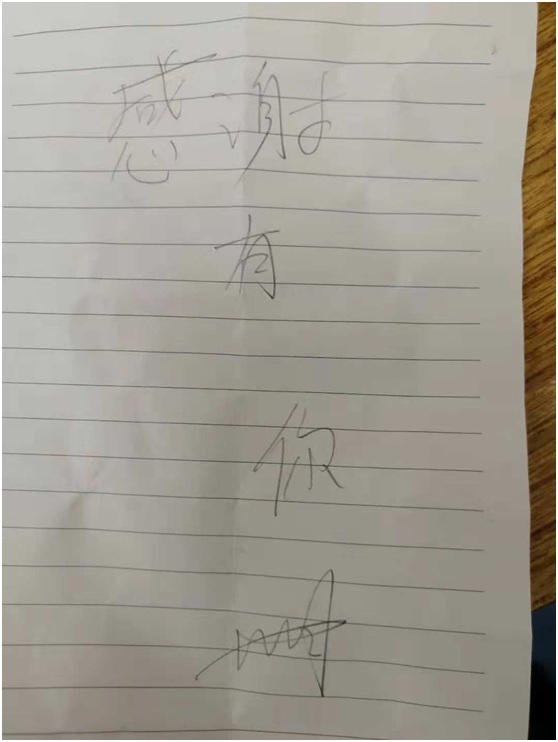 感谢
有
你